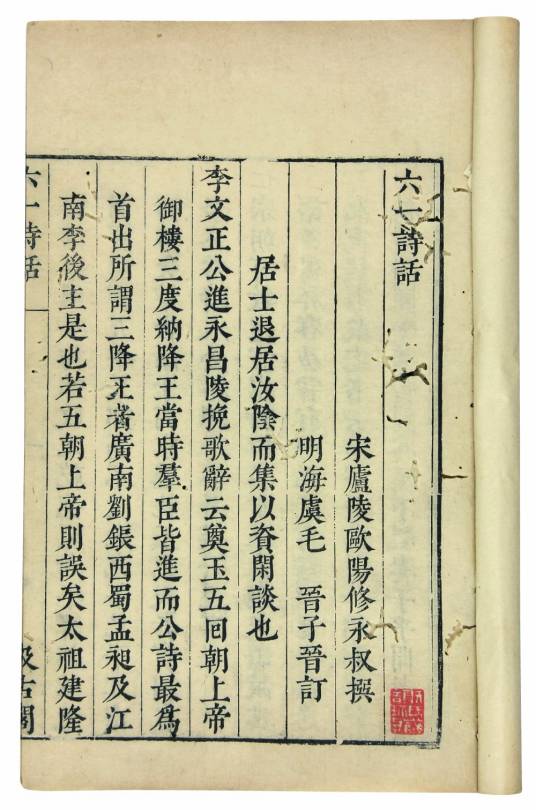 六一詩話
宋廬陵歐陽修永叔撰
明海虞毛　晉子晉訂
居士退居汝陰而集以資閑談也
李文正公進永昌陵挽歌辭云奠玉五囘朝上帝
御樓三度納降王當時羣臣皆進而公詩最爲
首出所謂三降王者廣南劉鋹西蜀孟昶及江
南李後主是也若五朝上帝則誤矣太祖建隆
六一詩話
汲古閣